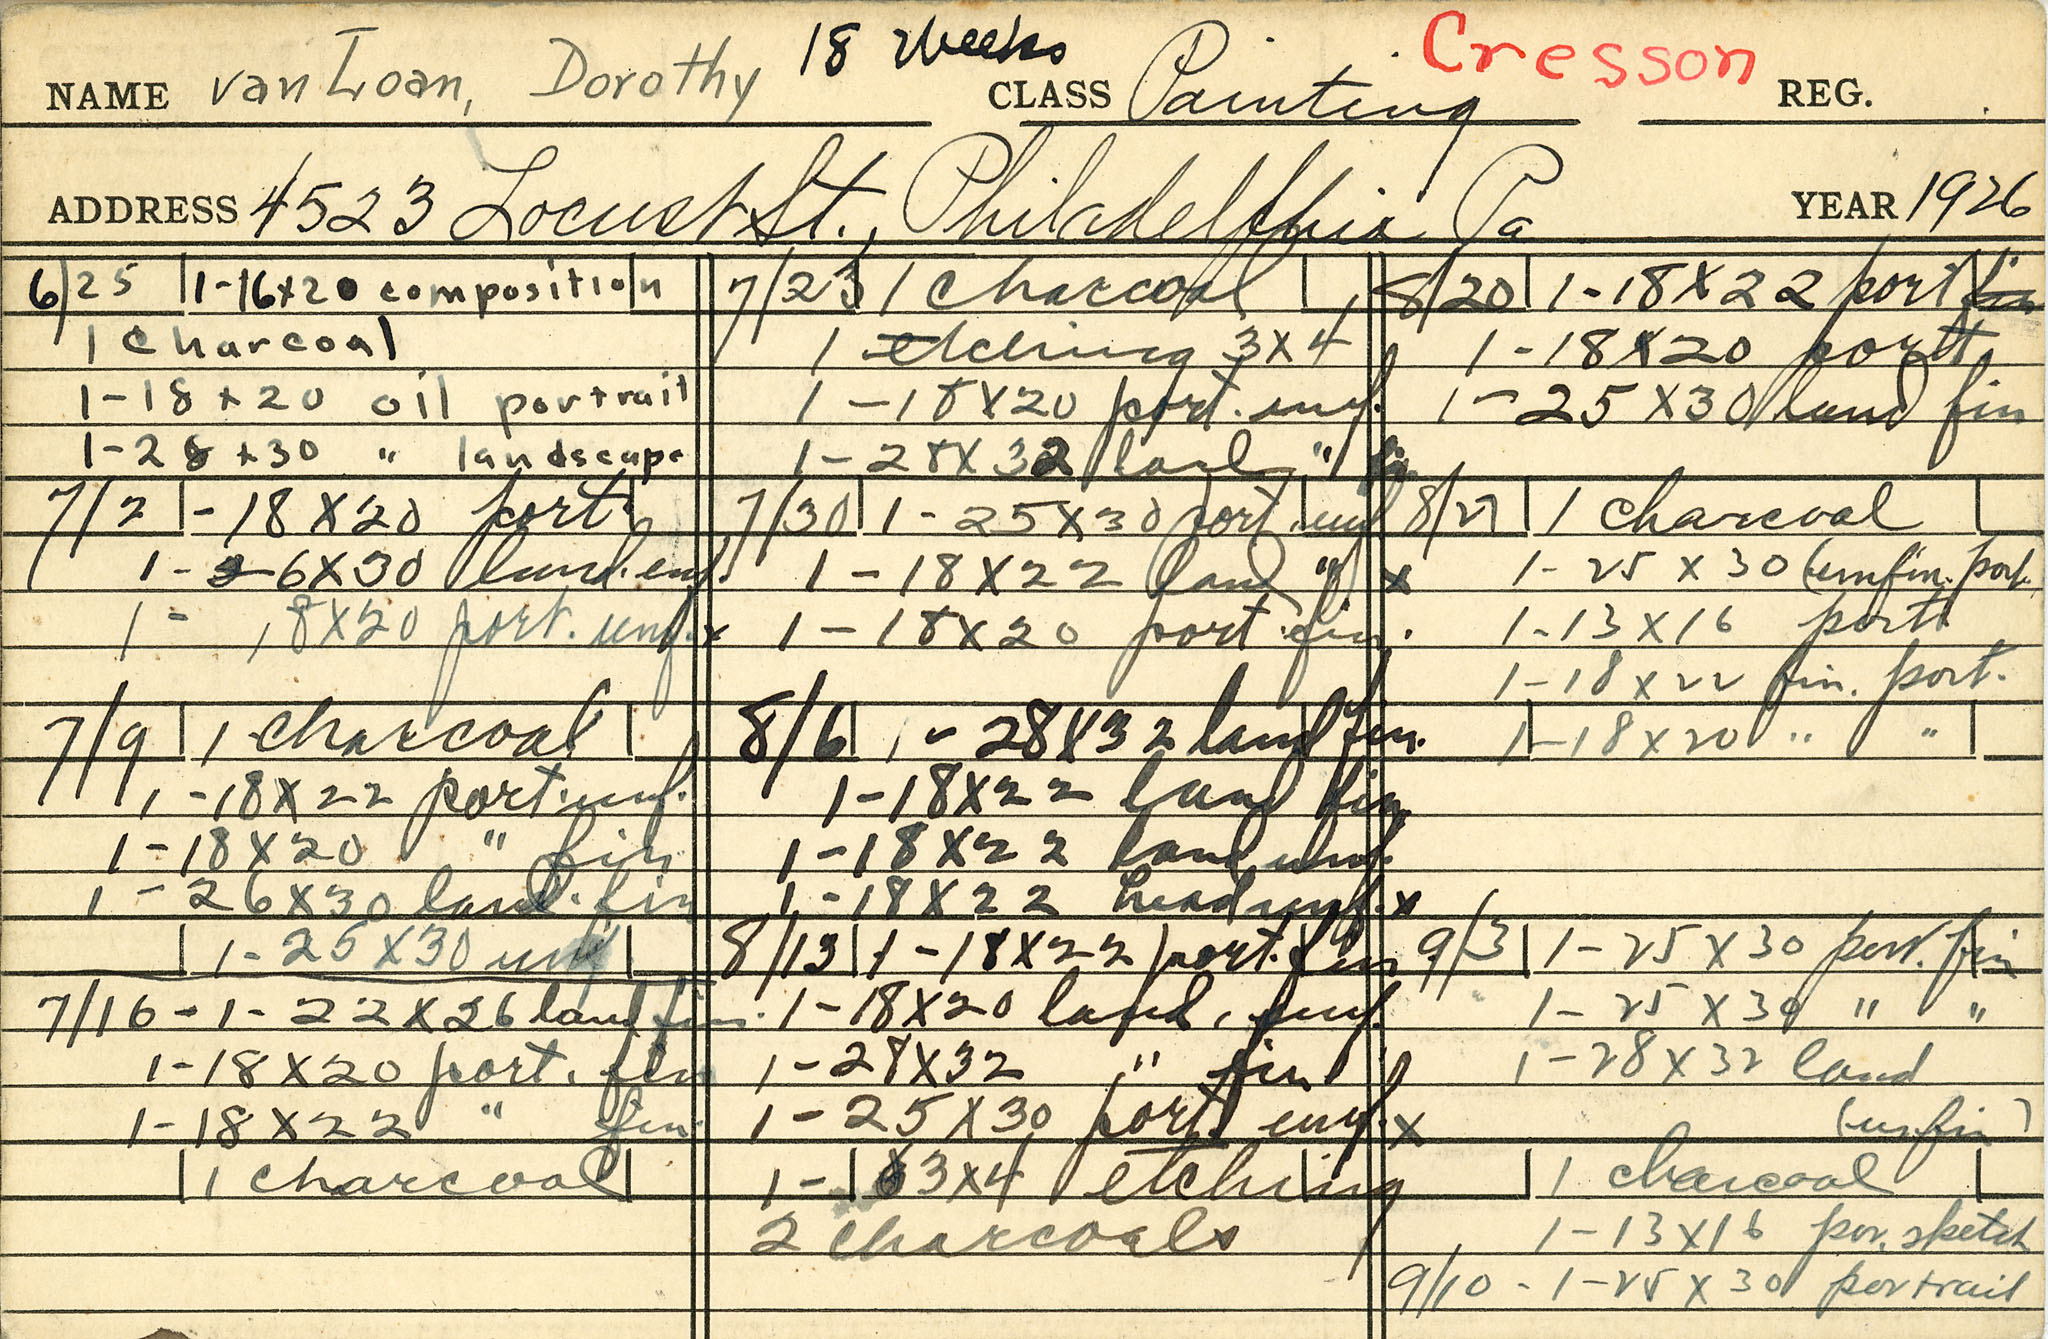 NAME van Loan, Dorothy 18 weeks CLASS Painting Cresson REG.
ADDRESS 4523 Locust St., Philadelphia Pa YEAR 1926
6/25 1-16x20 composition
1 charcoal
1-18x20 oil portrait
1-28x30 " landscape
7/2 1-18X20 port
1-26X30 land. unf.
1- 18X20 port. unf. x
7/9 1 charcoal
1-18X22 port. unf.
1-18X20 " fin
1-26X30 land. fin
1-25X30 unf
7/16-1-22X26 land fin.
1-18X20 port. fin
1-18X22 " fin.
1 charcoal
7/23 1 charcoal
1 etching 3X4
1-18X20 port. unf.
1-28X32 land "
7/30 1-25X30 port. unf
1-18X22 land " x
1-18X20 port. fin.
8/6 1-28X32 land fin.
1-18X22 land fin
1-18X22 land unf.
1-18X22 head unf. x
8/13 1-18X22 port. fin
1-18X20 land, unf.
1-28X32 " fin
1-25X30 port. unf. x
1-3X4 etching
2 charcoals
8/20 1-18X22 port
1-18X20 port
1-25X30 land fin
8/27 1 charcoal
1-25X30 (unfin. port.
1-13X16 port.
1-18X22 fin. port.
1-18X20 " "
9/3 1-25X30 port. fin
1-25X30 " "
1-28X32 land
(unfin)
1 charcoal
1-13X16 por. sketch
9/10-1-25X30 portrait